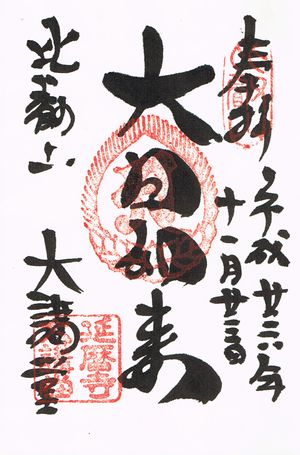 奉拝
平成廿六年
十一月廿三日
大日如来
比叡山 大講堂
延暦寺